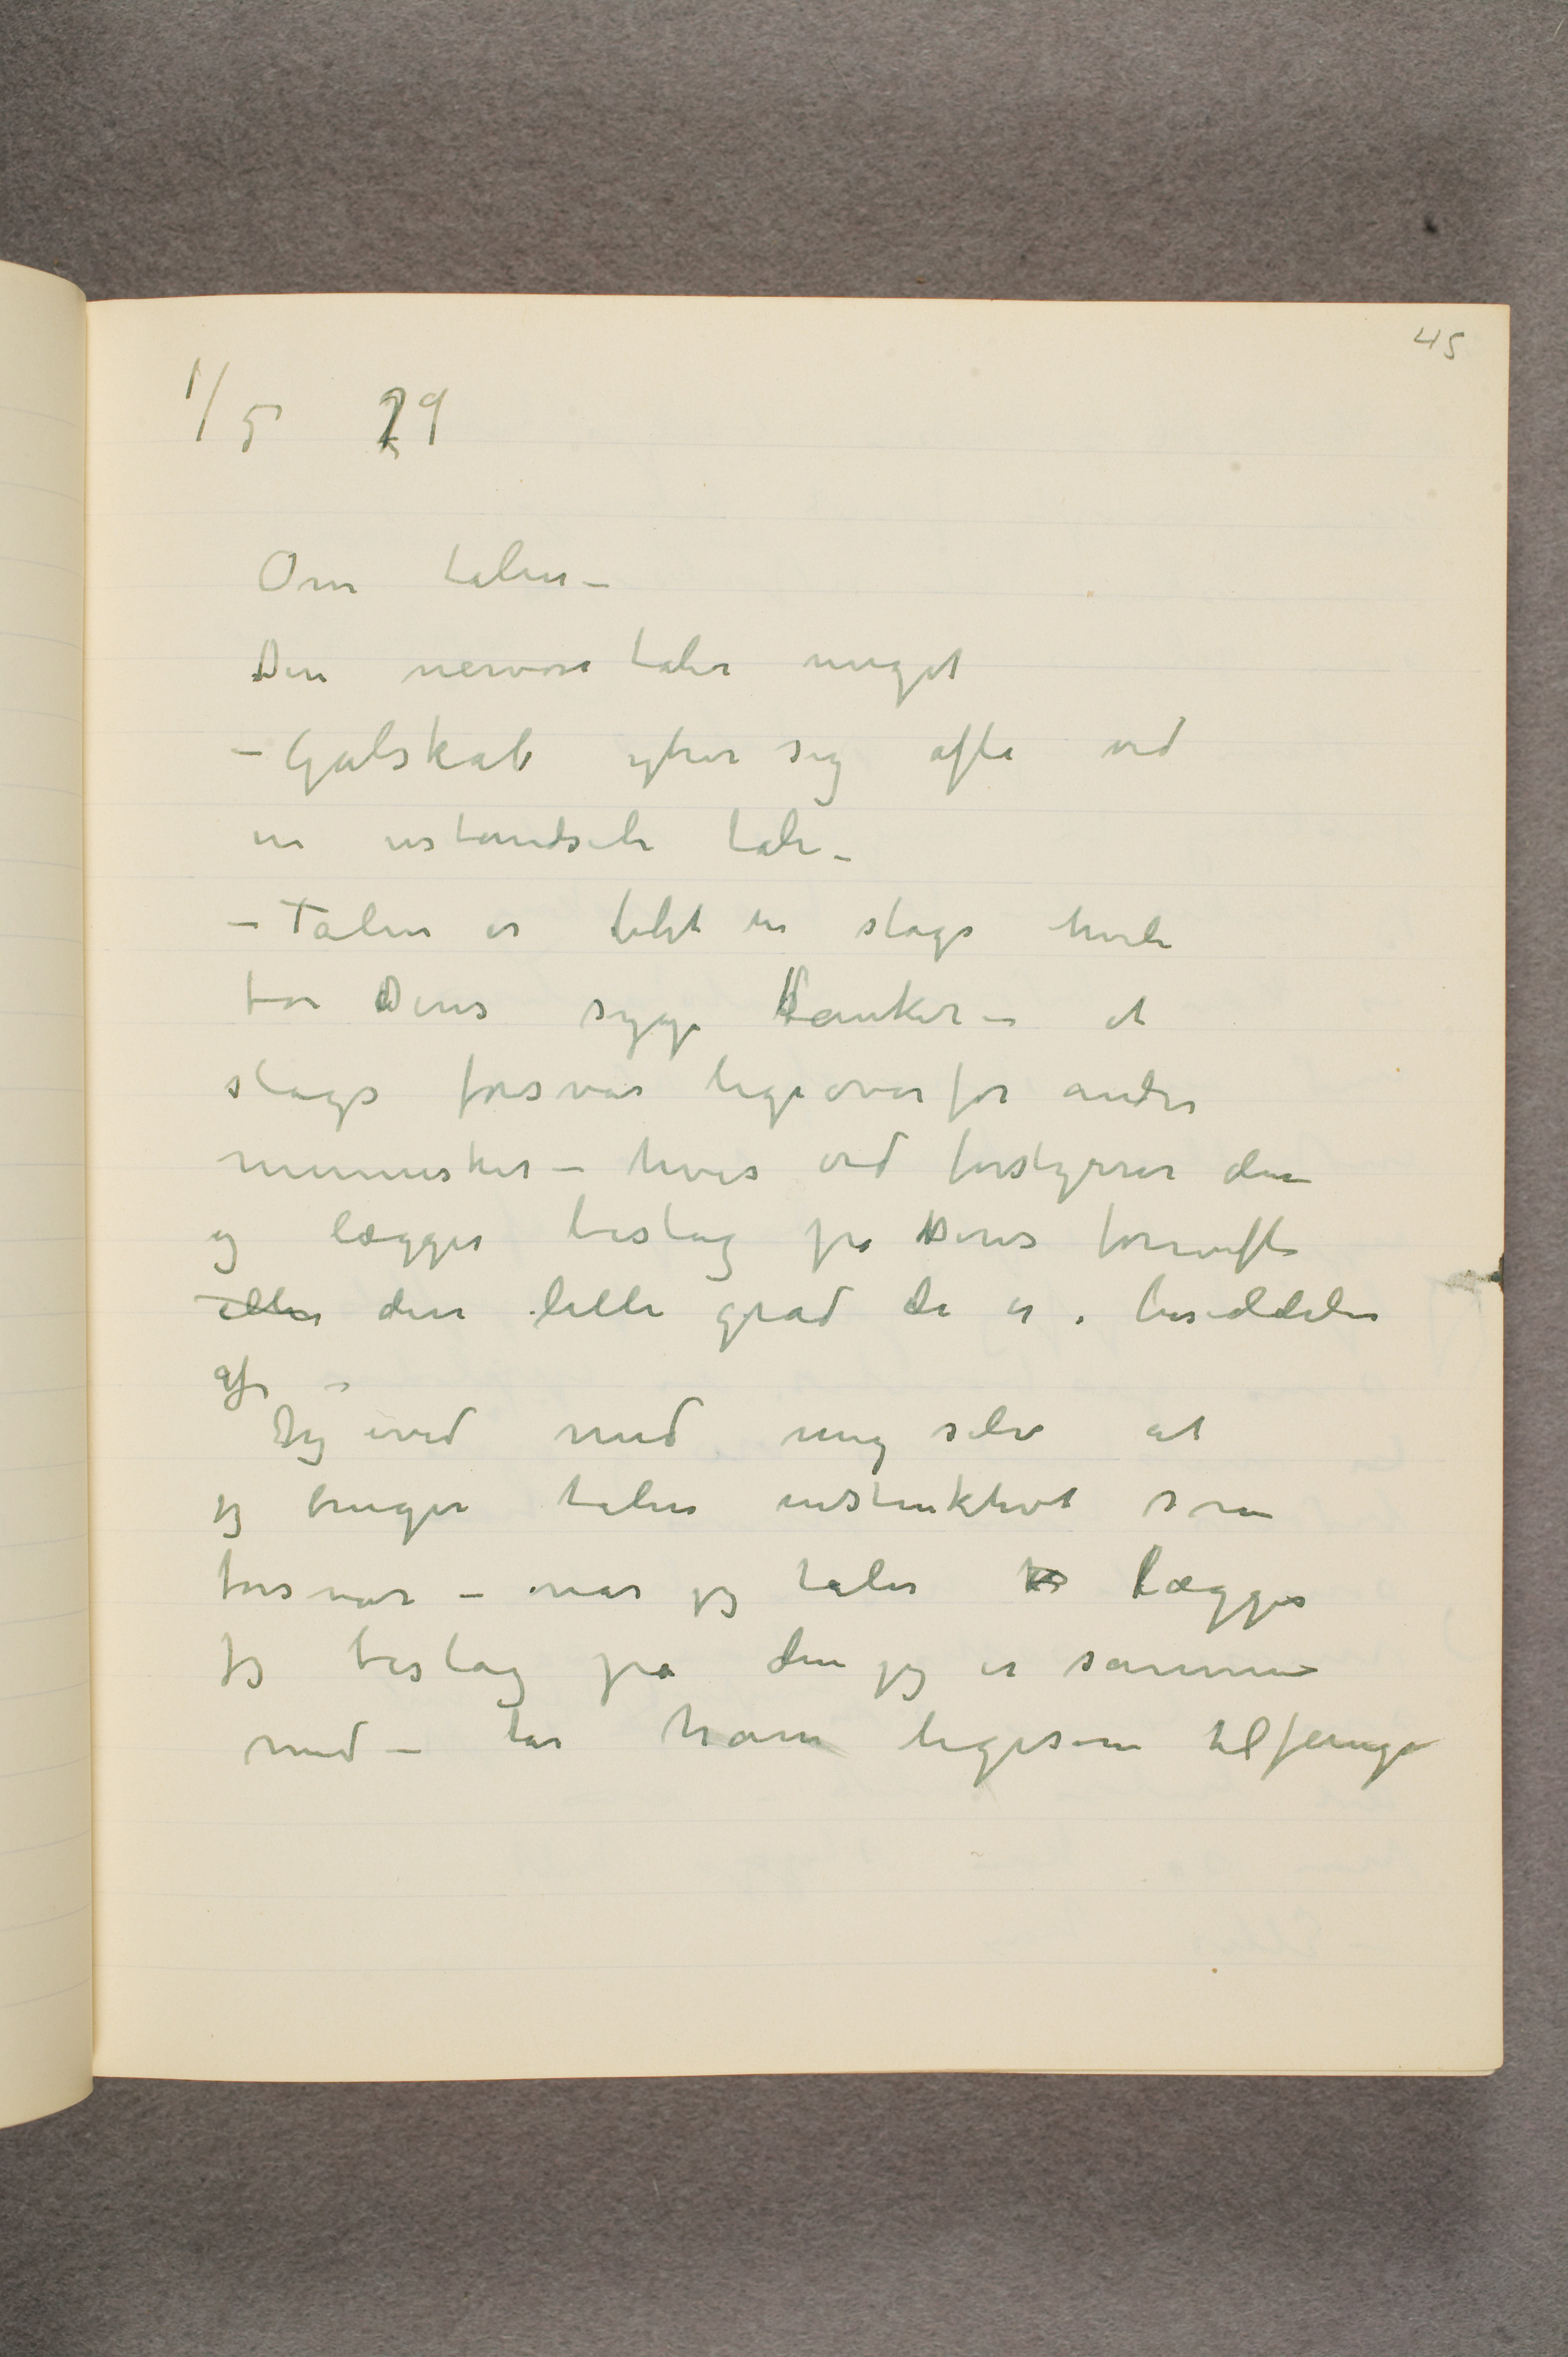 45
1/5 29
Om talen –
Den nervøse taler meget
– Galskab ytrer sig ofte ved
en ustandselig talen –
– Talen er blet en slags hvile
for Deres syge tanker – et
slags forsvar ligeoverfor andre
mennesker – hvis ord forstyrrer dem
og lægger beslag på Deres fornuft
eller den lille grad de er i besiddelse
af –
Jeg ved med mig selv at
jeg bruger talen instinktivt som
forsvar – når jeg taler lægger
jeg beslag på den jeg er sammen
med – tar ham ligesom tilfange